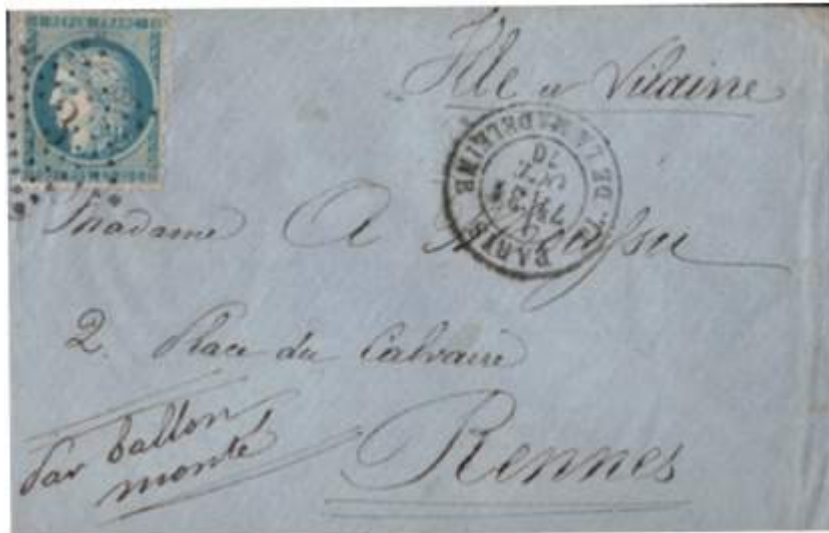 Ille et Vilaine
PARIS PL. DE LA MADELEINE
OCT.
Madame A
2. Place du Calvaire
Rennes
Par ballon
monté